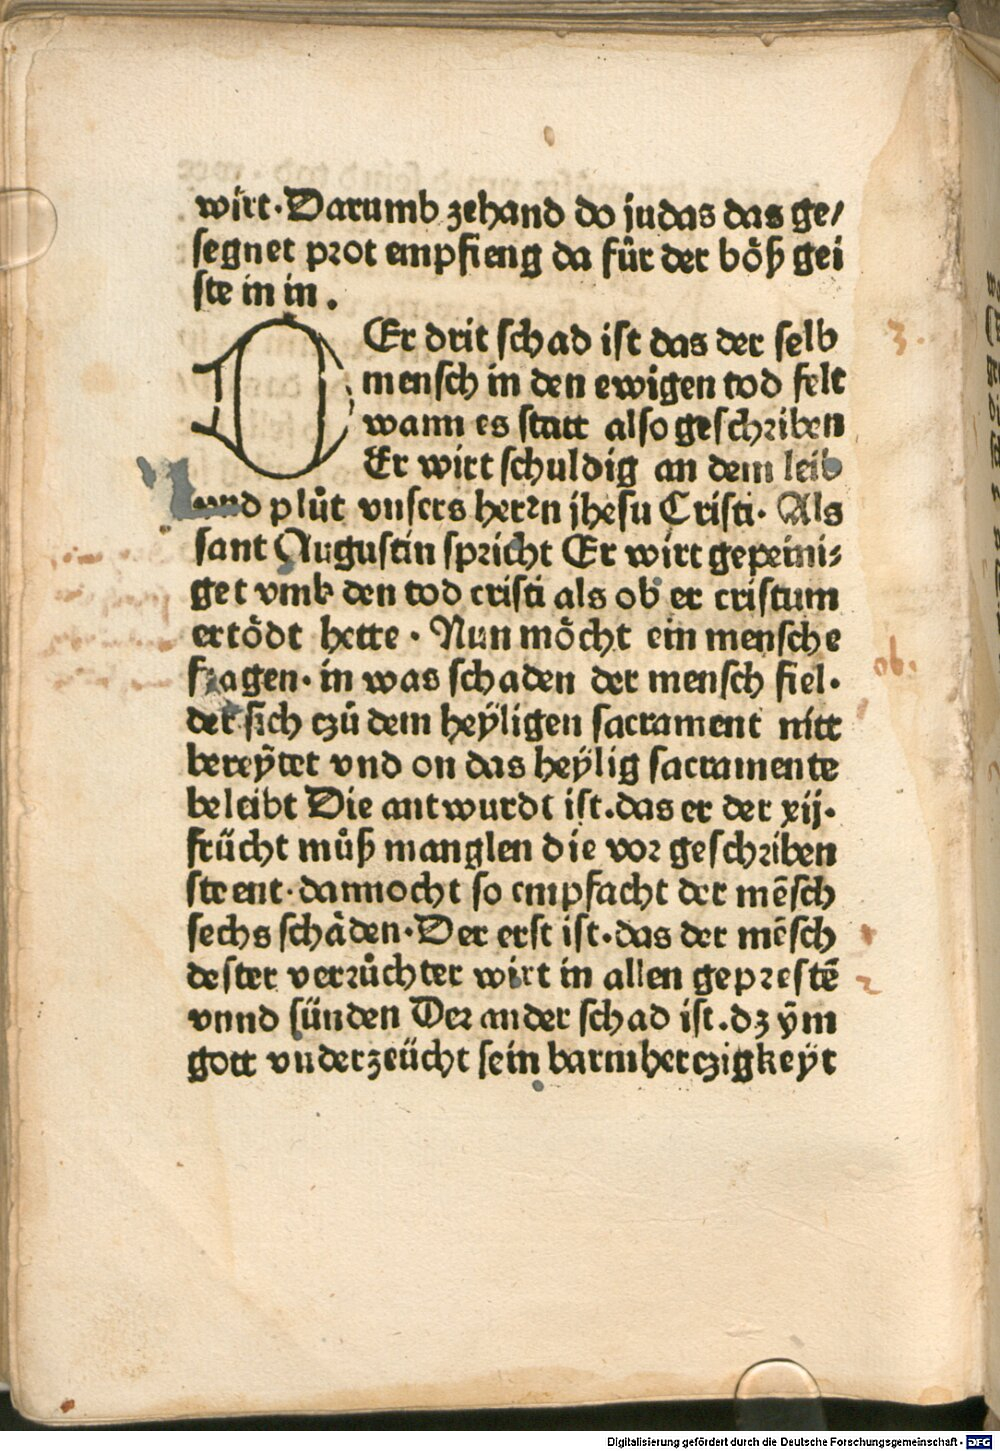 wirt. Darumb zehand do judas das ge/
segnet prot empfieng da fůr der bőß gei
ste in in.
DEr drit schad ist das der selb
mensch in den ewigen tod felt
wann es statt also geschriben
Er wirt schuldig an dem leib
und plůt vnsers herrn jhesu Cristi. Als
sant Augustin spricht Er wirt gepeini⸗
get vmb den tod cristi als ob er cristum
ertődt hette. Nun mőcht ein mensche
fragen. in was schaden der mensch fiel.
der sich czů dem heÿligen sacrament nitt
bereÿtet vnd on das heÿlig sacramente
beleibt Die antwurdt ist. das er der xij.
frücht můß manglen die vor geschriben
steent. dannocht so empfacht der mēsch
sechs schåden. Der erst ist. das der mēsch
dester verrůchter wirt in allen geprestē
vnnd sünden Der ander schad ist. dz ÿm
gott vnderzeücht sein barmherczigkeyt
3.
ob.
2
Digitalisierung gefördert durch die Deutsche Forschungsgemeinschaft - DFG